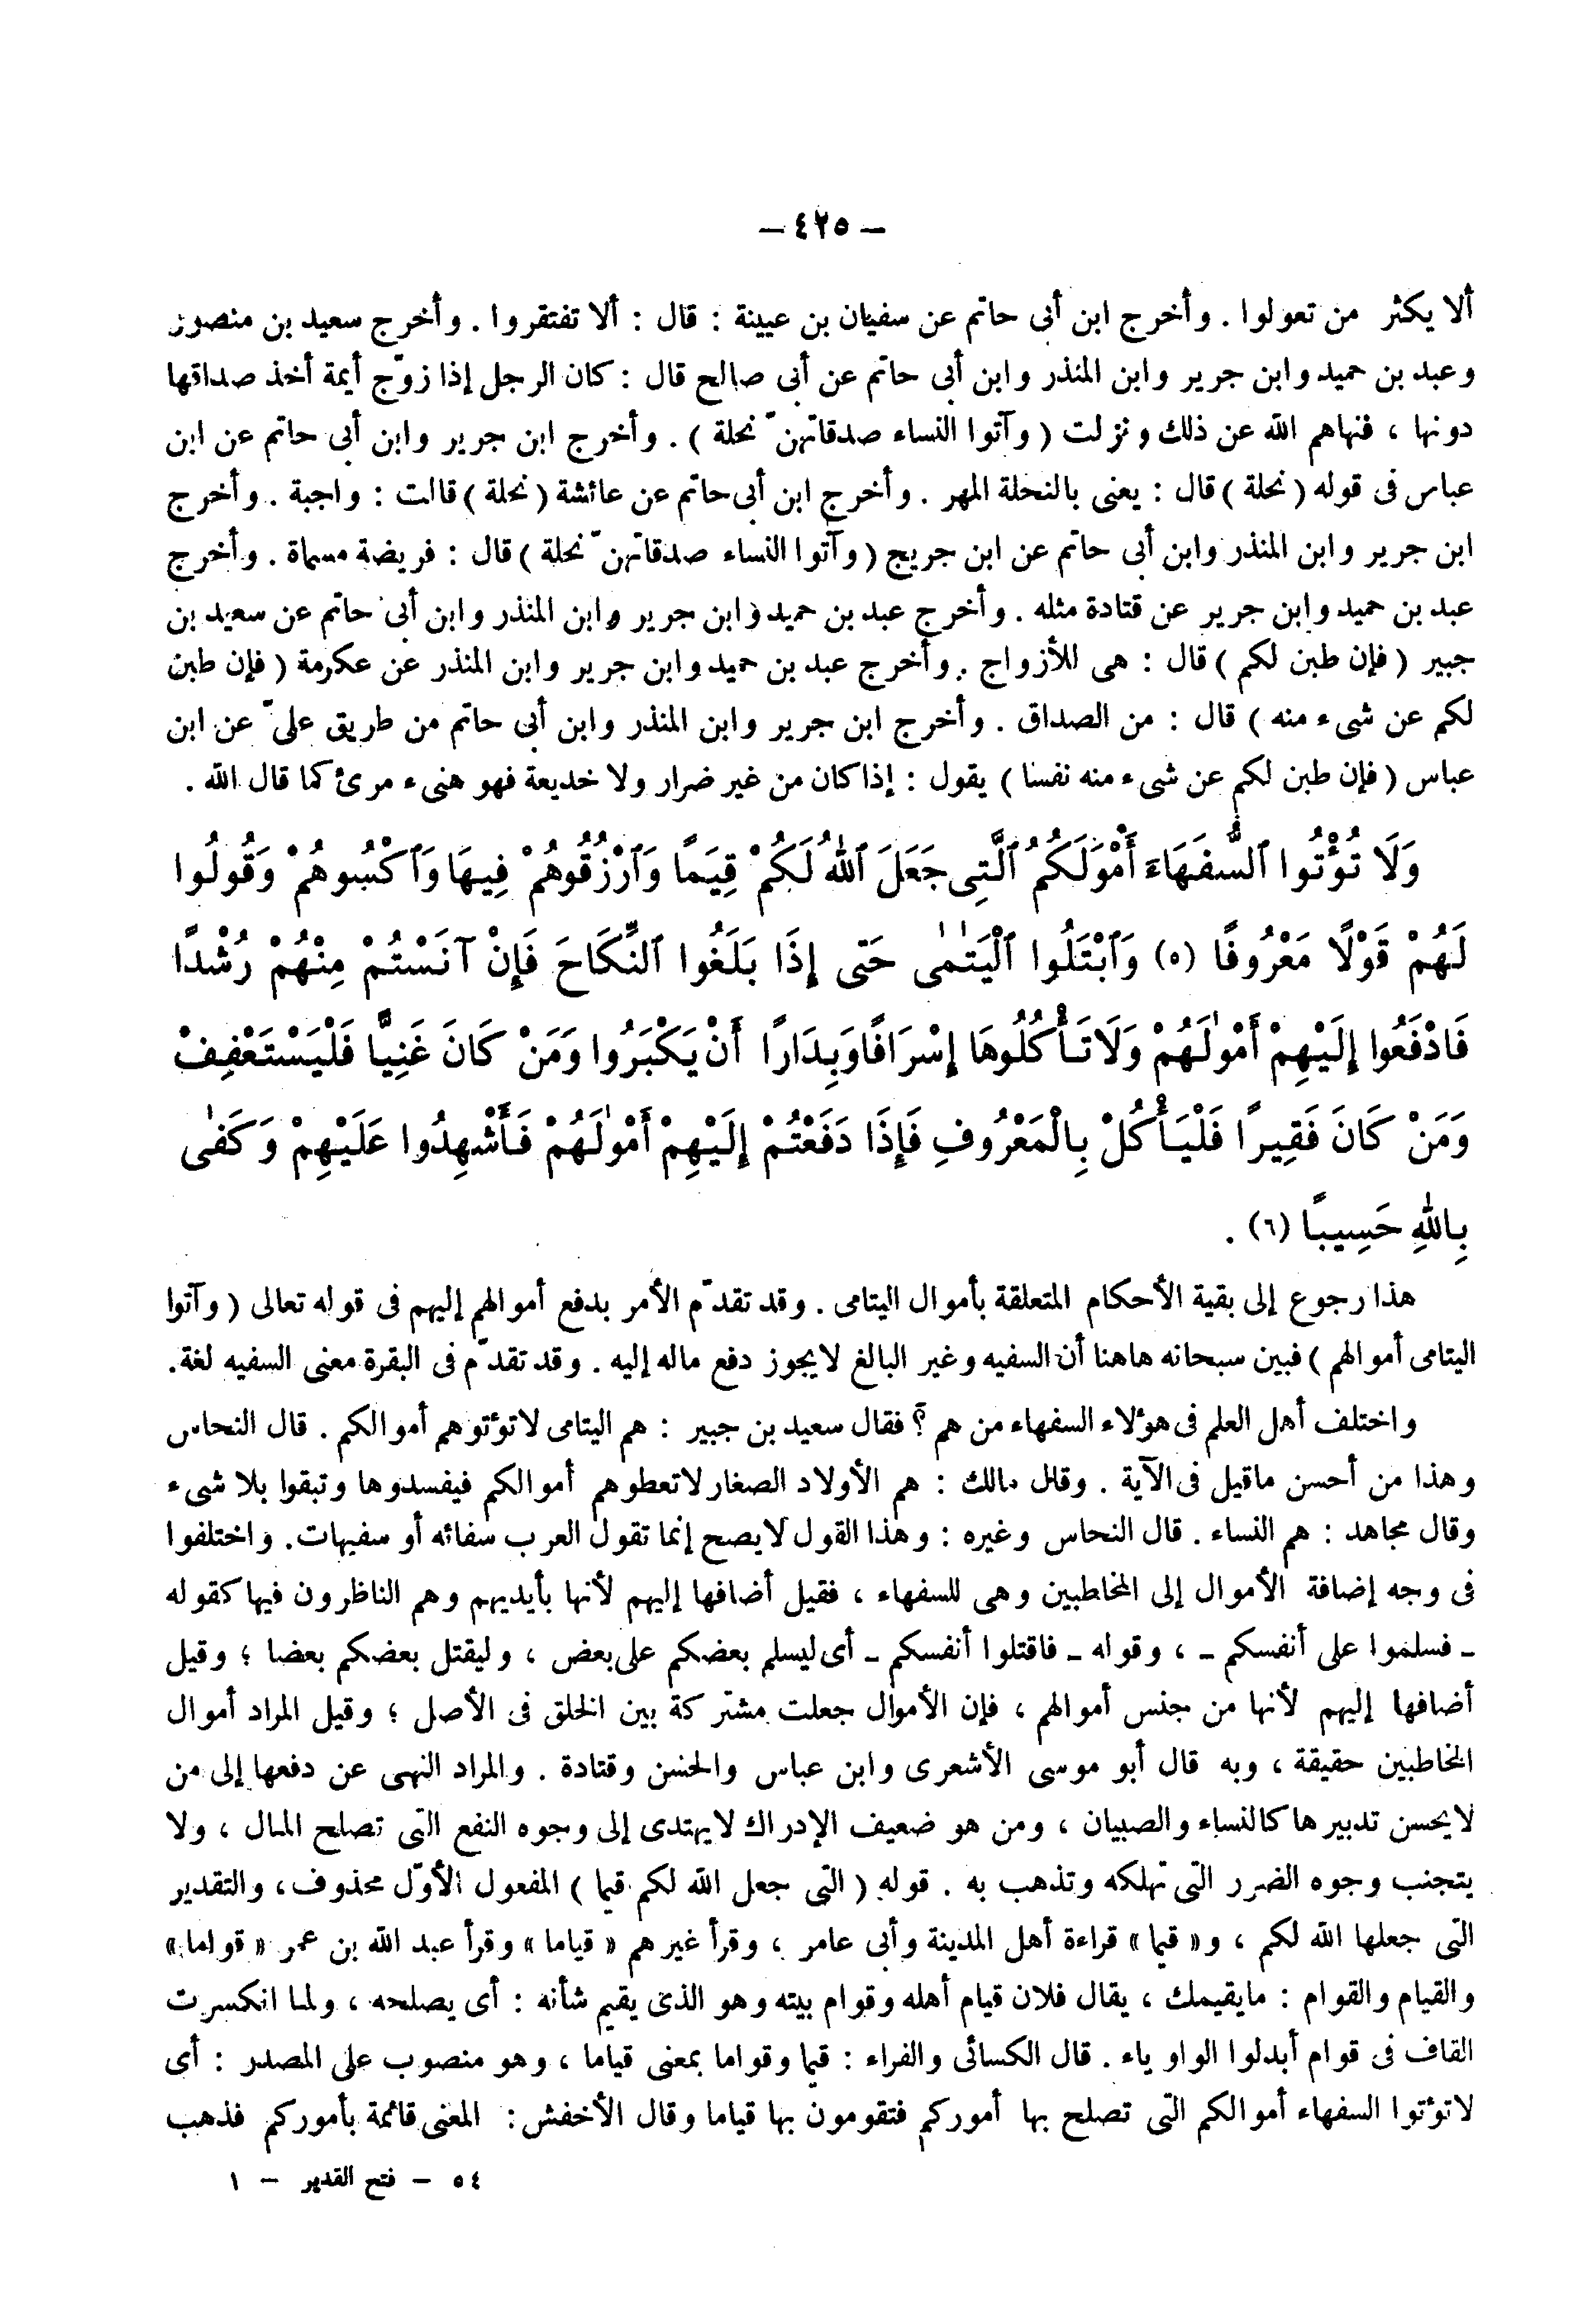 — ٤٢٥ —
ألا يكثر من تعولوا . وأخرج ابن أبى حاتم عن سفيان بن عيينة : قال : ألا تفتقروا . وأخرج سعيد بن منصور
وعبد بن حميد وابن جرير وابن المنذر وابن أبى حاتم عن أبى صالح قال : كان الرجل إذا زوّج أيمة أخذ صداقها
دونها ، فنهاهم الله عن ذلك ونزلت ( وآتوا النساء صدقاتهنّ نحلة ) . وأخرج ابن جرير وابن أبى حاتم عن ابن
عباس فى قوله ( نحلة ) قال : يعنى بالنحلة المهر . وأخرج ابن أبى حاتم عن عائشة ( نحلة ) قالت : واجبة . وأخرج
ابن جرير وابن المنذر وابن أبى حاتم عن ابن جريج ( وآتوا النساء صدقاتهنّ نحلة ) قال : فريضة مسماة . وأخرج
عبد بن حميد وابن جرير عن قتادة مثله . وأخرج عبد بن حميد وابن جرير وابن المنذر وابن أبى حاتم عن سعيد بن
جبير ( فإن طبن لكم ) قال : هى للأزواج . وأخرج عبد بن حميد وابن جرير وابن المنذر عن عكرمة ( فإن طبن
لكم عن شىء منه ) قال : من الصداق . وأخرج ابن جرير وابن المنذر وابن أبى حاتم من طريق علىّ عن ابن
عباس ( فإن طبن لكم عن شىء منه نفسا ) يقول : إذا كان من غير ضرار ولا خديعة فهو هنىء مرئ كما قال الله .
وَلَا تُؤْتُوا ٱلسُّفَهَاءَ أَمْوَلَكُمُ ٱلَّتِى جَعَلَ ٱللهُ لَكُمْ قِيَمًا وَٱرْزُقُوهُمْ فِيهَا وَٱكْسُوهُمْ وَقُولُوا
لَهُمْ قَوْلًا مَعْرُوفًا (٥) وَٱبْتَلُوا ٱلْيَتٰمٰى حَتى إِذَا بَلَغُوا ٱلنِّكَاحَ فَإِنْ آنَسْتُمْ مِنْهُمْ رُشْدًا
فَادْفَعُوا إِلَيْهِمْ أَمْوٰلَهُمْ وَلَا تَأْكُلُوهَا إِسْرَافًا وَبِدَارًا أَنْ يَكْبَرُوا وَمَنْ كَانَ غَنِيًّا فَلْيَسْتَعْفِفْ
وَمَنْ كَانَ فَقِيرًا فَلْيَأْكُلْ بِالْمَعْرُوفِ فَإِذَا دَفَعْتُمْ إِلَيْهِمْ أَمْوٰلَهُمْ فَأَشْهِدُوا عَلَيْهِمْ وَكَفٰى
بِاللهِ حَسِيبًا (٦) .
هذا رجوع إلى بقية الأحكام المتعلقة بأموال اليتامى . وقد تقدّم الأمر بدفع أموالهم إليهم فى قوله تعالى ( وآتوا
اليتامى أموالهم ) فبين سبحانه هاهنا أن السفيه وغير البالغ لا يجوز دفع ماله إليه . وقد تقدّم فى البقرة معنى السفيه لغة.
واختلف أهل العلم فى هؤلاء السفهاء من هم ؟ فقال سعيد بن جبير : هم اليتامى لا تؤتوهم أموالكم . قال النحاس
وهذا من أحسن ماقيل فى الآية . وقال مالك : هم الأولاد الصغار لا تعطوهم أموالكم فيفسدوها وتبقوا بلا شىء
وقال مجاهد : هم النساء . قال النحاس وغيره : وهذا القول لا يصح إنما تقول العرب سفائه أو سفيهات. واختلفوا
فى وجه إضافة الأموال إلى المخاطبين وهى للسفهاء ، فقيل أضافها إليهم لأنها بأيديهم وهم الناظرون فيها كقوله
ـ فسلموا على أنفسكم ـ ، وقوله ـ فاقتلوا أنفسكم ـ أى ليسلم بعضكم على بعض ، وليقتل بعضكم بعضا ؛ وقيل
أضافها إليهم لأنها من جنس أموالهم ، فإن الأموال جعلت مشتركة بين الخلق فى الأصل ؛ وقيل المراد أموال
المخاطبين حقيقة ، وبه قال أبو موسى الأشعرى وابن عباس والحسن وقتادة . والمراد النهى عن دفعها إلى من
لا يحسن تدبيرها كالنساء والصبيان ، ومن هو ضعيف الإدراك لا يهتدى إلى وجوه النفع التى تصلح المال ، ولا
يتجنب وجوه الضرر التى تهلكه وتذهب به . قوله ( التى جعل الله لكم قيما ) المفعول الأوّل محذوف، والتقدير
التى جعلها الله لكم ، و« قيما » قراءة أهل المدينة وأبى عامر ، وقرأ غيرهم « قياما » وقرأ عبد الله بن عمر « قواما »
والقيام والقوام : مايقيمك ، يقال فلان قيام أهله وقوام بيته وهو الذى يقيم شأنه : أى يصلحه ، ولما انكسرت
القاف فى قوام أبدلوا الواو ياء . قال الكسائى والفراء : قيما وقواما بمعنى قياما ، وهو منصوب على المصدر : أى
لا تؤتوا السفهاء أموالكم التى تصلح بها أموركم فتقومون بها قياما وقال الأخفش : المعنى قائمة بأموركم فذهب
٥٤ — فتح القدير — ١